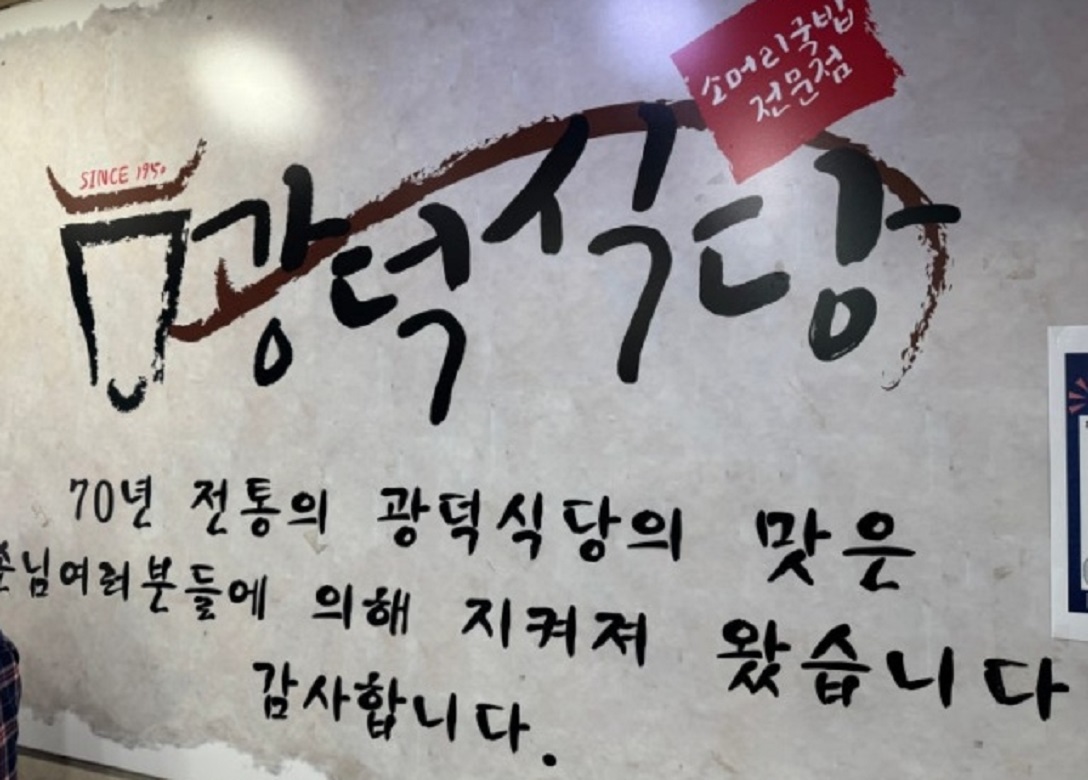 소머리국밥
전문점
SINCE 1950
광덕식당
70년 전통의 광덕식당의 맛은
손님여러분들에 의해 지켜져 왔습니다
감사합니다.